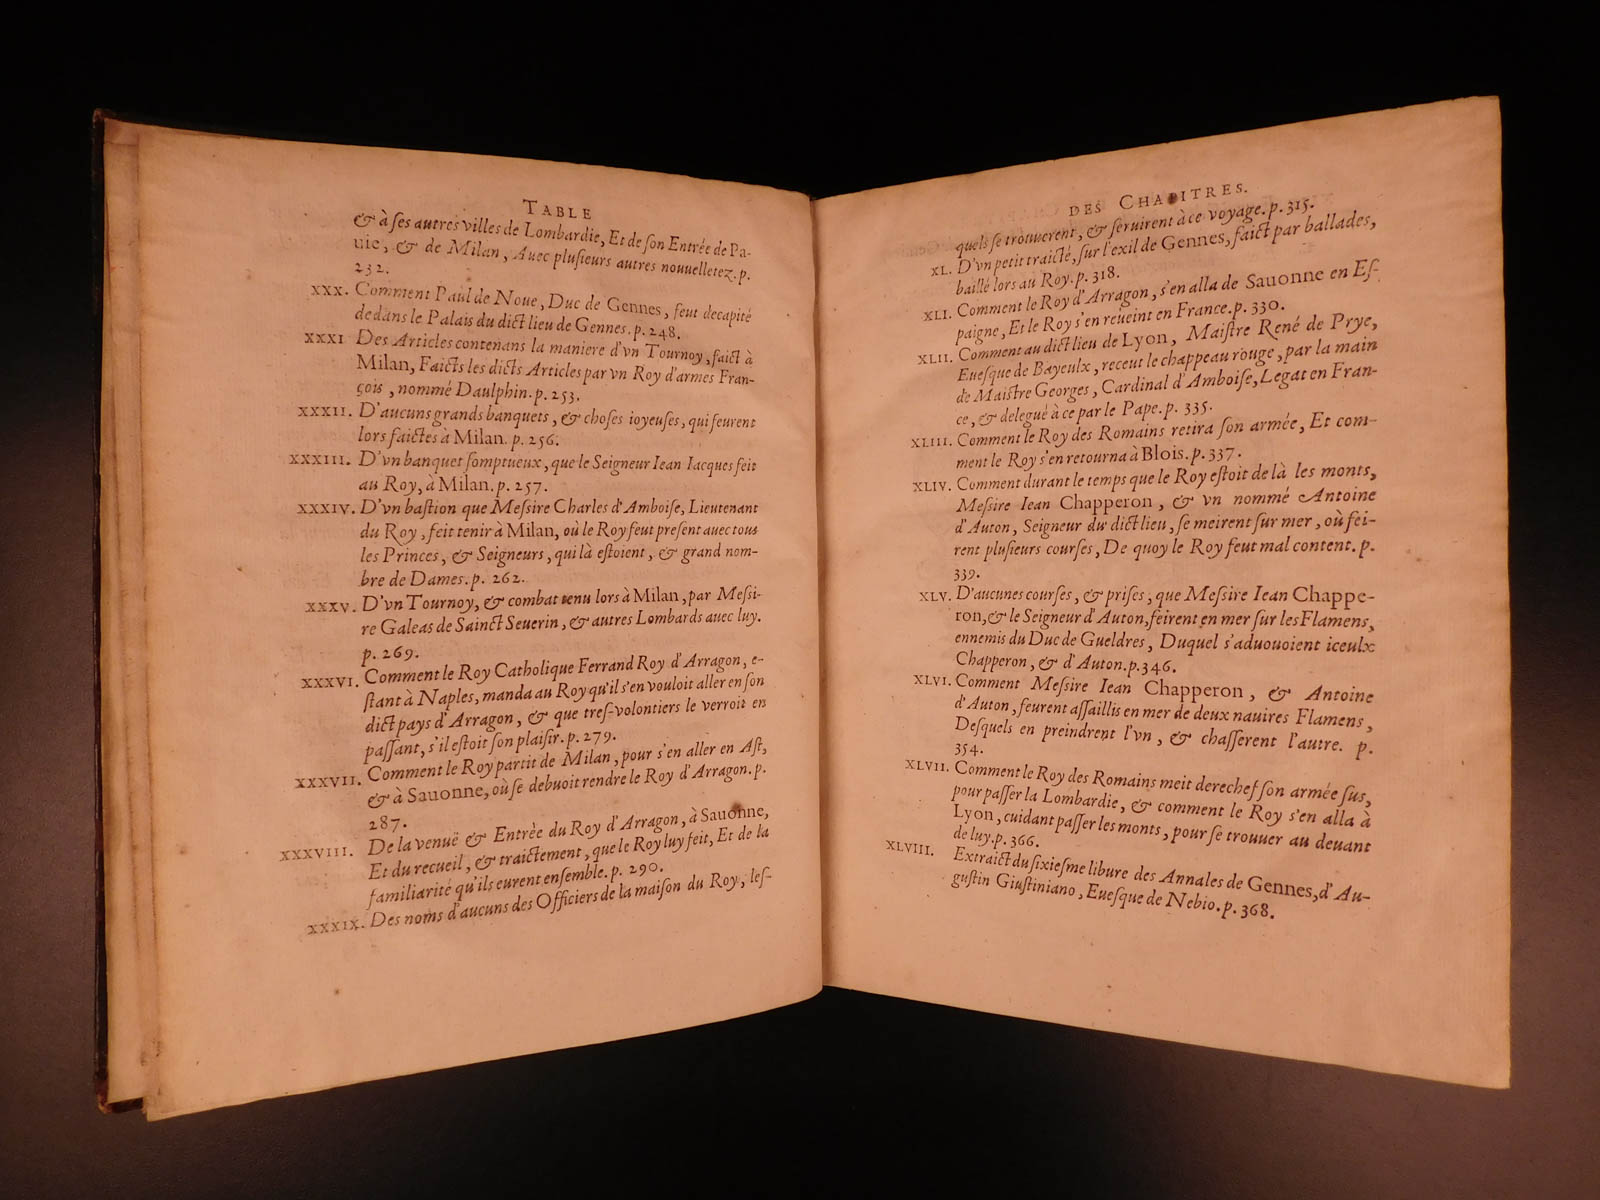 TABLE
& à ses autres villes de Lombardie, Et de son Entrée de Pa-
uie, & de Milan, Auec plusieurs autres nouuelletez. p.
232.
XXX. Comment Paul de Noue, Duc de Gennes, feut decapité
dedans le Palais du dict lieu de Gennes. p. 248.
XXXI Des Articles contenans la maniere d'vn Tournoy, faict à
Milan, Faicts les dicts Articles par vn Roy d'armes Fran-
çois, nommé Daulphin. p. 253.
XXXII. D'aucuns grands banquets, & choses ioyeuses, qui feurent
lors faictes à Milan. p. 256.
XXXIII. D'vn banquet somptueux, que le Seigneur Iean Iacques feit
au Roy, à Milan. p. 257.
XXXIV. D'vn bastion que Messire Charles d'Amboise, Lieutenant
du Roy, feit tenir à Milan, où le Roy feut present auec tous
les Princes, & Seigneurs, qui là estoient, & grand nom-
bre de Dames. p. 262.
XXXV. D'vn Tournoy, & combat tenu lors à Milan, par Messi-
re Galeas de Sainct Seuerin, & autres Lombards auec luy.
p. 269.
XXXVI. Comment le Roy Catholique Ferrand Roy d'Arragon, e-
stant à Naples, manda au Roy qu'il s'en vouloit aller en son
dict pays d'Arragon, & que tres-volontiers le verroit en
passant, s'il estoit son plaisir. p. 279.
XXXVII. Comment le Roy partit de Milan, pour s'en aller en Ast,
& à Sauonne, où se debuoit rendre le Roy d'Arragon. p.
287.
XXXVIII. De la venuë & Entrée du Roy d'Arragon, à Sauonne,
Et du recueil, & traictement, que le Roy luy feit, Et de la
familiarité qu'ils eurent ensemble. p. 290.
XXXIX. Des noms d'aucuns des Officiers de la maison du Roy, les-
DES CHAPITRES.
quels se trouuerent, & seruirent à ce voyage. p. 315.
XL. D'vn petit traicté, sur l'exil de Gennes, faict par ballades,
baillé lors au Roy. p. 318.
XLI. Comment le Roy d'Arragon, s'en alla de Sauonne en Es-
paigne, Et le Roy s'en reueint en France. p. 330.
XLII. Comment au dict lieu de Lyon, Maistre René de Prye,
Euesque de Bayeulx, receut le chappeau rouge, par la main
de Maistre Georges, Cardinal d'Amboise, Legat en Fran-
ce, & delegué à ce par le Pape. p. 335.
XLIII. Comment le Roy des Romains retira son armée, Et com-
ment le Roy s'en retourna à Blois. p. 337.
XLIV. Comment durant le temps que le Roy estoit de là les monts,
Messire Iean Chapperon, & vn nommé Antoine
d'Auton, Seigneur du dict lieu, se meirent sur mer, où fei-
rent plusieurs courses, De quoy le Roy feut mal content. p.
339.
XLV. D'aucunes courses, & prises, que Messire Iean Chappe-
ron, & le Seigneur d'Auton, feirent en mer sur les Flamens,
ennemis du Duc de Gueldres, Duquel s'aduouoient iceulx
Chapperon, & d'Auton. p. 346.
XLVI. Comment Messire Iean Chapperon, & Antoine
d'Auton, feurent assaillis en mer de deux nauires Flamens,
Desquels en preindrent l'vn, & chasserent l'autre. p.
354.
XLVII. Comment le Roy des Romains meit derechef son armée sus,
pour passer la Lombardie, & comment le Roy s'en alla à
Lyon, cuidant passer les monts, pour se trouuer au deuant
de luy. p. 366.
XLVIII. Extraict du sixiesme liбure des Annales de Gennes, d'Au-
gustin Giustiniano, Euesque de Nebio. p. 368.